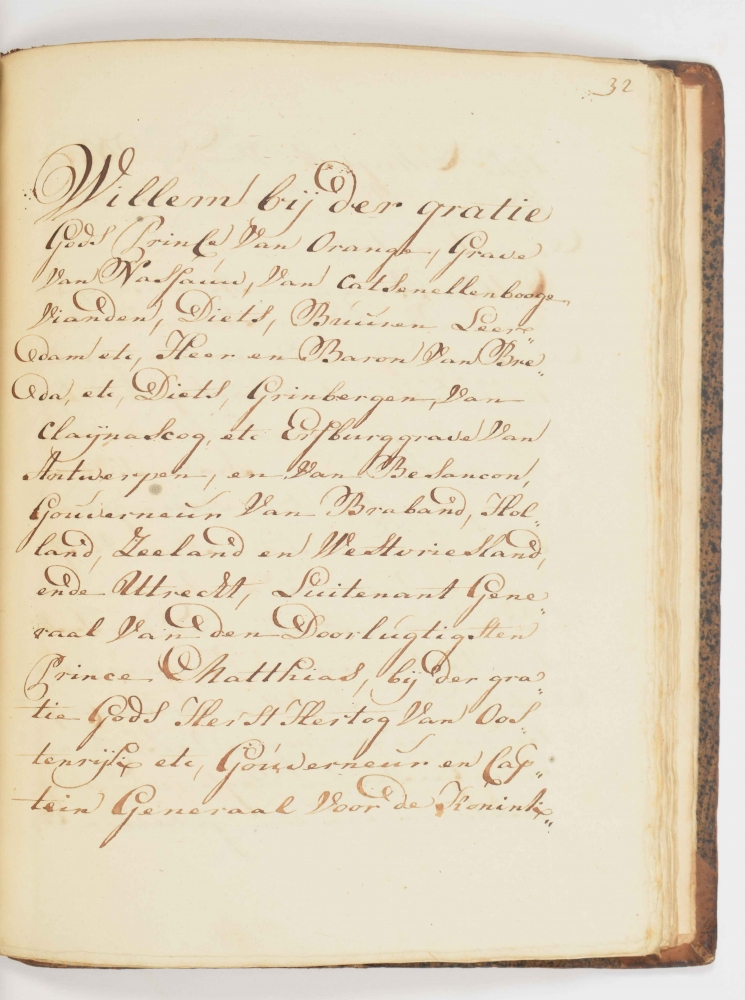 32
Willem bij der gratie
Gods Prince Van Orange, Grave
Van Nassauw, Van Catsenellenbooge
Vianden, Diets, Buuren Leer„
dam etc, Heer en Baron Van Bre„
da, etc, Diets, Grinbergen, Van
Claijnascog, etc Erfburggrave Van
Antwerpen, en Van Besancon,
Gouverneur Van Braband, Hol„
land, Zeeland en Westvriesland,
ende Uttrecht, Luitenant Gene„
raal Van den Doorlugtigsten
Prince Matthias, bij der gra„
tie Gods Herst Hertog Van Oos„
tenrijk etc, Gouverneur en Cap„
tein Generaal Voor de Konink„